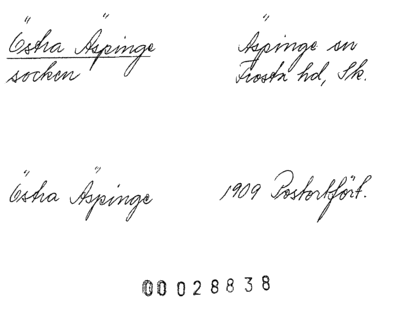 Östra Äspinge
socken
Äspinge sn
Frosta hd, Sk.
Östra Äspinge
1909 Postortfört.
00028838